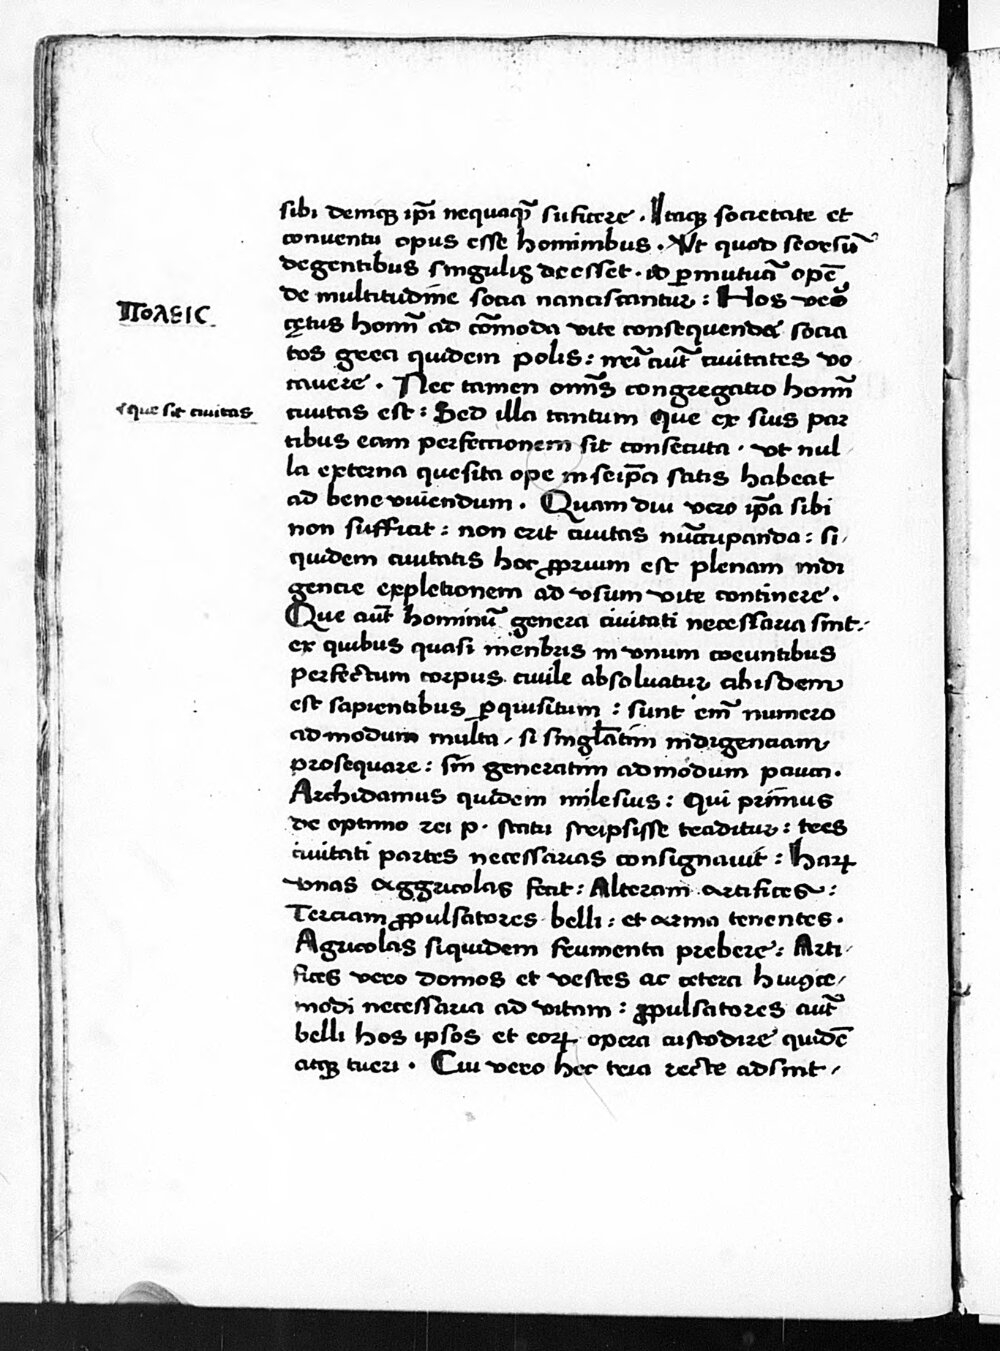 sibi demqꝫ ip̄i nequaqꝫ suficere . Itaqꝫ societate et
conventu opus esse hominibus . Ut quod seorsū
degentibus singulis deesset . id ꝑmutuā opē
de multitudine socia nanciscantur : Hos vero
ΠΟΛΕΙC
cętus hoīm ad cōmoda vite consequenda socia
tos greci quidem polis : nr̄i aūt civitates vo
cavere . Nec tamen omīs congregatio hoīm
que sit civitas
civitas est : Sed illa tantum que ex suis par
tibus eam perfectionem sit consecuta . vt nul
la externa quesita ope in seip̄a satis habeat
ad bene vivendum . Quam diu vero ip̄a sibi
non sufficit : non erit civitas nūcupanda : si
quidem civitatis hoc ꝓprium est plenam indi
gencie expletionem ad vsum vite continere .
Que aūt hominū genera civitati necessaria sint .
ex quibus quasi menbris in vnum coeuntibus
perfectum corpus civile absolvatur ab iisdem
est sapientibus ꝑquisitum : sunt em̄ numero
admodum multa / si singlatim indigenciam
prosequare : sin generatim admodum pauca .
Archidamus quidem milesius : qui primus
de optimo rei p . statu scripsisse traditur : tres
civitati partes necessarias consignavit : harꝝ
vnas aggricolas fecit : Alteram artifices :
Terciam ꝓpulsatores belli : et arma tenentes .
Agricolas siquidem frumenta prebere : Arti
fices vero domos et vestes ac cetera huiꝰce
modi necessaria ad vitam : ꝓpulsatores aūt
belli hos ipsos et eorꝝ opera custodire quidē
atqꝫ tueri . Cui vero hec tria recte adsint /